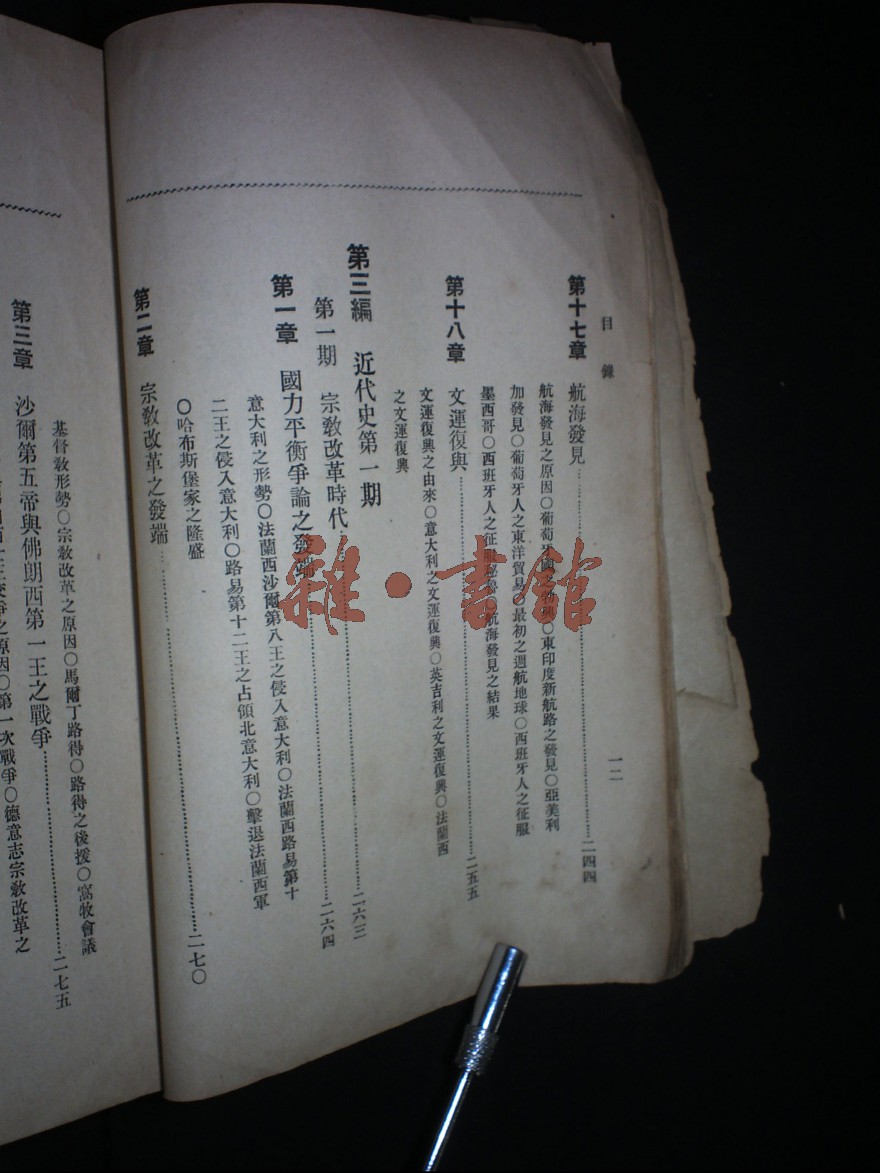 目錄
一二
第十七章 航海發見……二四四
航海發見之原因〇葡萄牙〇東印度新航路之發見〇亞美利
加發見〇葡萄牙人之東洋貿易〇最初之週航地球〇西班牙人之征服
墨西哥〇西班牙人之征服秘魯〇航海發見之結果
第十八章 文運復興……二五五
文運復興之由來〇意大利之文運復興〇英吉利之文運復興〇法蘭西
之文運復興
第三編 近代史第一期……二六三
第一期 宗敎改革時代……二六四
第一章 國力平衡爭論之發端
意大利之形勢〇法蘭西沙爾第八王之侵入意大利〇法蘭西路易第十
二王之侵入意大利〇路易第十二王之占領北意大利〇擊退法蘭西軍
〇哈布斯堡家之隆盛
第二章 宗敎改革之發端……二七〇
基督敎形勢〇宗敎改革之原因〇馬爾丁路得〇路得之後援〇窩牧會議
第三章 沙爾第五帝與佛朗西第一王之戰爭……二七五
爭之原因〇第一次戰爭〇德意志宗敎改革之
雜·書館